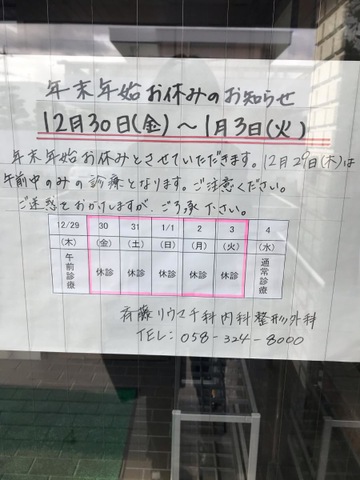 年末年始お休みのお知らせ
12月30日(金)～1月3日(火)
年末年始お休みとさせていただきます。12月29日(木)は
午前中のみの診療となります。ご注意ください。
ご迷惑をおかけしますが、ご了承下さい。
12/29 30 31 1/1 2 3 4
(木) (金) (土) (日) (月) (火) (水)
午前診療 休診 休診 休診 休診 休診 通常診療
斉藤リウマチ科内科整形外科
TEL: 058-324-8000